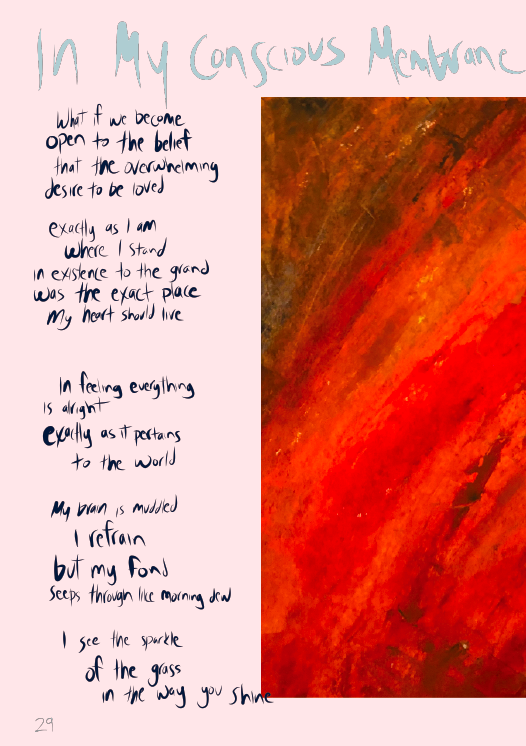 In My Conscious Membrane
What if we become
open to the belief
that the overwhelming
desire to be loved
exactly as I am
where I stand
in existence to the grand
was the exact place
My heart should live
In feeling everything
is alright
exactly as it pertains
to the world
My brain is muddled
I refrain
but my fond
seeps through like morning dew
I see the sparkle
of the grass
in the way you shine
29